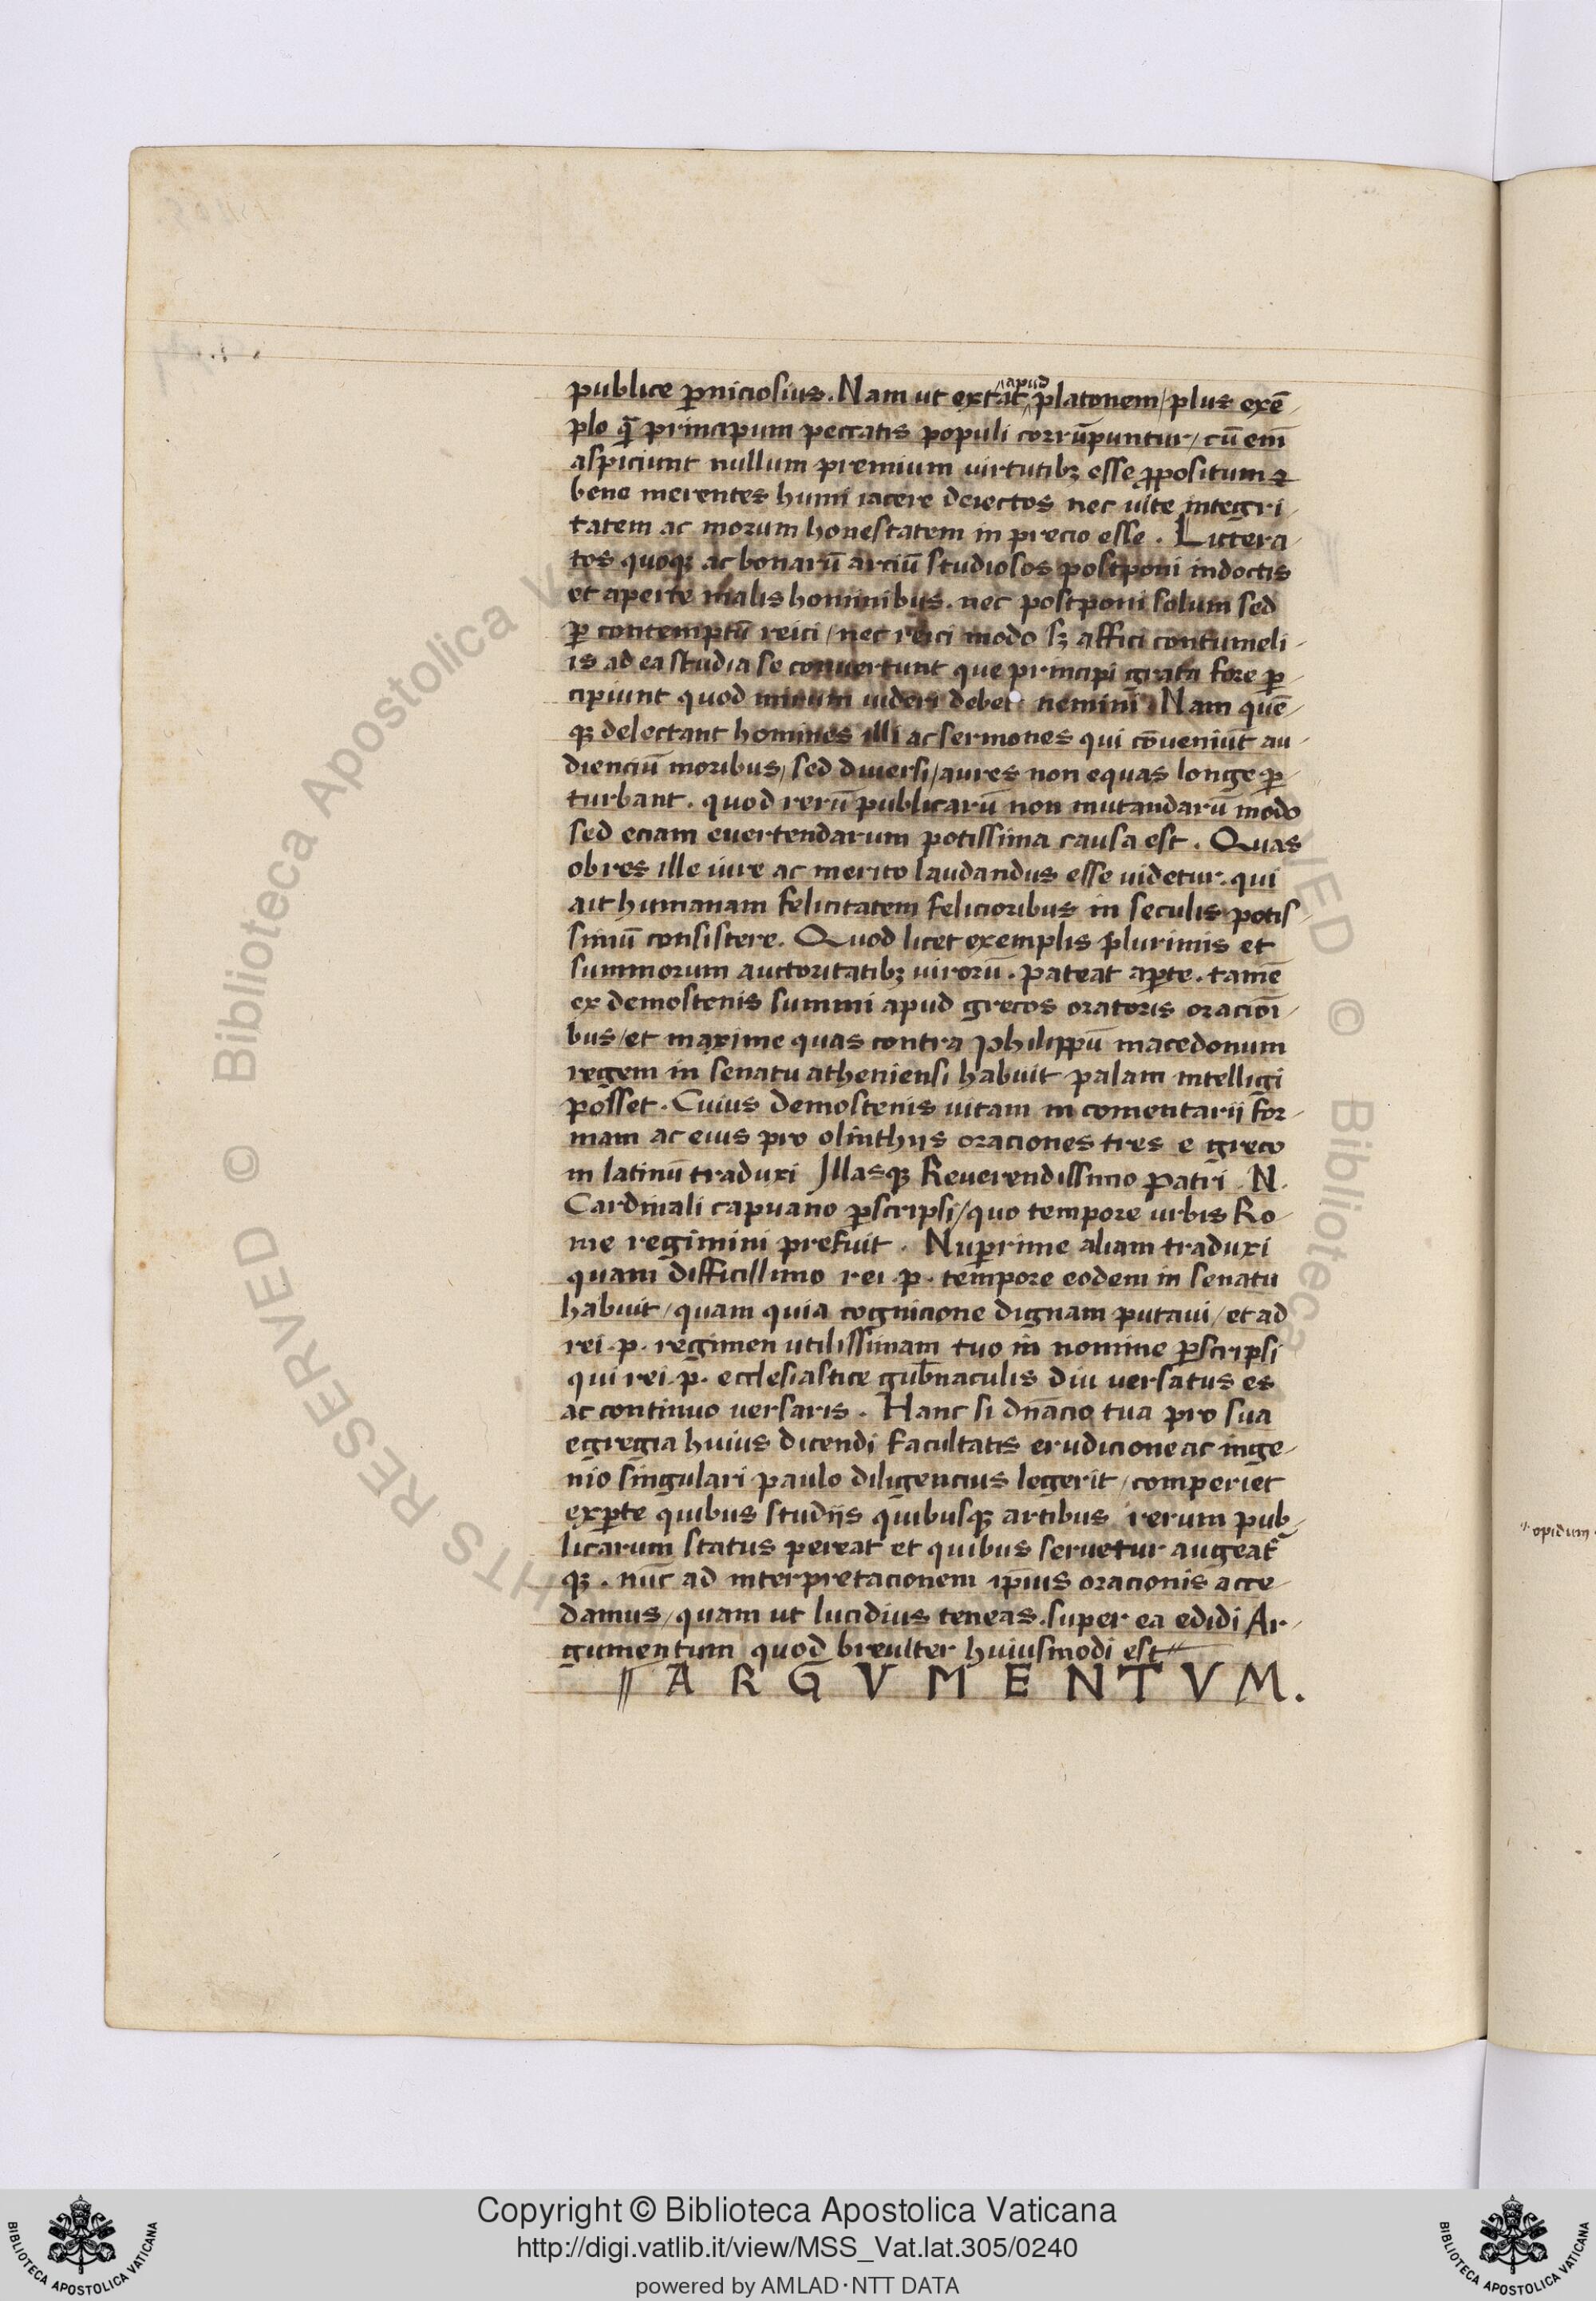 publice ꝑniciosius. Nam ut extat apud platonem / plus exē
plo qᷓ principum peccatis populi corrūpuntur / cū em̄
aspiciunt nullum premium virtutibꝫ esse ꝓpositum ⁊
bene merentes humi iacere deiectos nec uite integri
tatem ac morum honestatem in precio esse. Littera
tos quoqꝫ ac bonarū arciū studiosos postponi indoctis
et aperte malis hominibus. nec postponi solum sed
ꝑ contemptū reici / nec reici modo sꝫ affici contumeli
is ad ea studia se convertunt que principi grata fore ꝑ
cipiunt quod mirum uideri debet nemini. Nam quē
qꝫ delectant homines illi ac sermones qui cōveniūt au
dienciū moribus / sed diversi / aures non equas longe ꝑ
turbant. quod rerū publicarū non mutandarū modo
sed eciam evertendarum potissima causa est. Quas
ob res ille iure ac merito laudandus esse uidetur. qui
ait humanam felicitatem felicioribus in seculis potis
simū consistere. Quod licet exemplis plurimis et
summorum auctoritatibꝫ uirorū. pateat aꝑte. tamē
ex demostenis summi apud grecos oratoris oracioī
bus / et maxime quas contra philippū macedonum
regem in senatu atheniensi habuit palam intelligi
posset. Cuius demostenis uitam in comentarii for
mam ac eius pro olinthiis oraciones tres e greco
in latinū traduxi Illasqꝫ Reverendissimo patri. N.
Cardinali capuano ꝑscripsi / quo tempore urbis Ro
me regimini prefuit. Nuꝑrime aliam traduxi
quam difficillimo rei. p. tempore eodem in senatu
habuit / quam quia cognicione dignam putaui / et ad
rei. p. regimen utilissimam tuo in nomine ꝑscripsi
qui rei. p. ecclesiastice gub̄naculis diu versatus es
ac continuo versaris. Hanc si dn̄acio tua pro sua
egregia huius dicendi facultatis erudicione ac inge
nio singulari paulo diligencius legerit / comperiet
exꝑte quibus studiis quibusqꝫ artibus rerum pub
licarum status pereat et quibus servetur augeat᷑
qꝫ. nūc ad interpretacionem ip̄ius oracionis acce
damus / quam ut lucidius teneas. super ea edidi Ar
gumentum quod breuiter huiusmodi est
ARGVMENTVM.
opidum
© Biblioteca Apostolica V
RIGHTS RESERVED
VED © Biblioteca
Copyright © Biblioteca Apostolica Vaticana
http://digi.vatlib.it/view/MSS_Vat.lat.305/0240
powered by AMLAD·NTT DATA
BIBLIOTECA APOSTOLICA VATICANA
BIBLIOTECA APOSTOLICA VATICANA